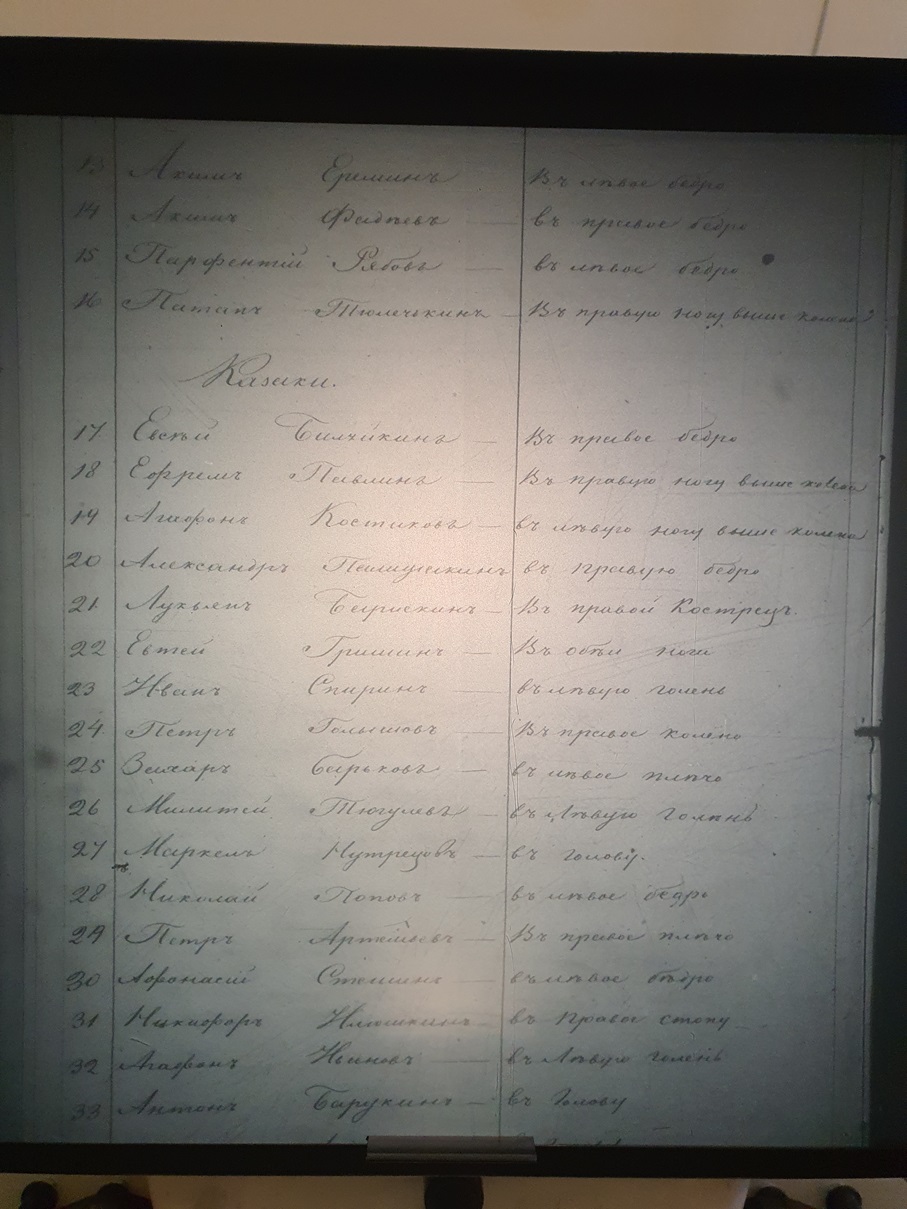 13 Акимъ Ереминъ Въ лѣвое бедро
14 Акимъ Фадѣевъ — въ правое бедро
15 Парфентій Рябовъ — въ лѣвое бедро
16 Патапъ Тюлечькинъ — Въ правую ногу выше колена
Казаки.
17 Евсѣй — Въ правое бедро
18 Ефремъ Павлинъ — Въ правую ногу выше колена
19 Агафонъ Костиковъ — въ лѣвую ногу выше колена
20 Александръ въ правую бедро
21 Лукьянъ — Въ правой Кострецъ.
22 Евтей Гришинъ — Въ обѣи ноги
23 Иванъ Спиринъ — въ лѣвую голень
24 Петръ Голышовъ — Въ правое колено
25 Захаръ — въ лѣвое плѣчо
26 — въ Лѣвую Голѣнь
27 Маркелъ — въ голову.
28 Николай Поповъ — въ лѣвое бедро
29 Петръ — Въ правое плѣчо
30 Афонасій въ лѣвое бѣдро
31 Никифоръ Илюшкинъ въ Правое стопу
32 Агафонъ — въ Лѣвую голень
33 Антонъ Барукинъ — въ Голову